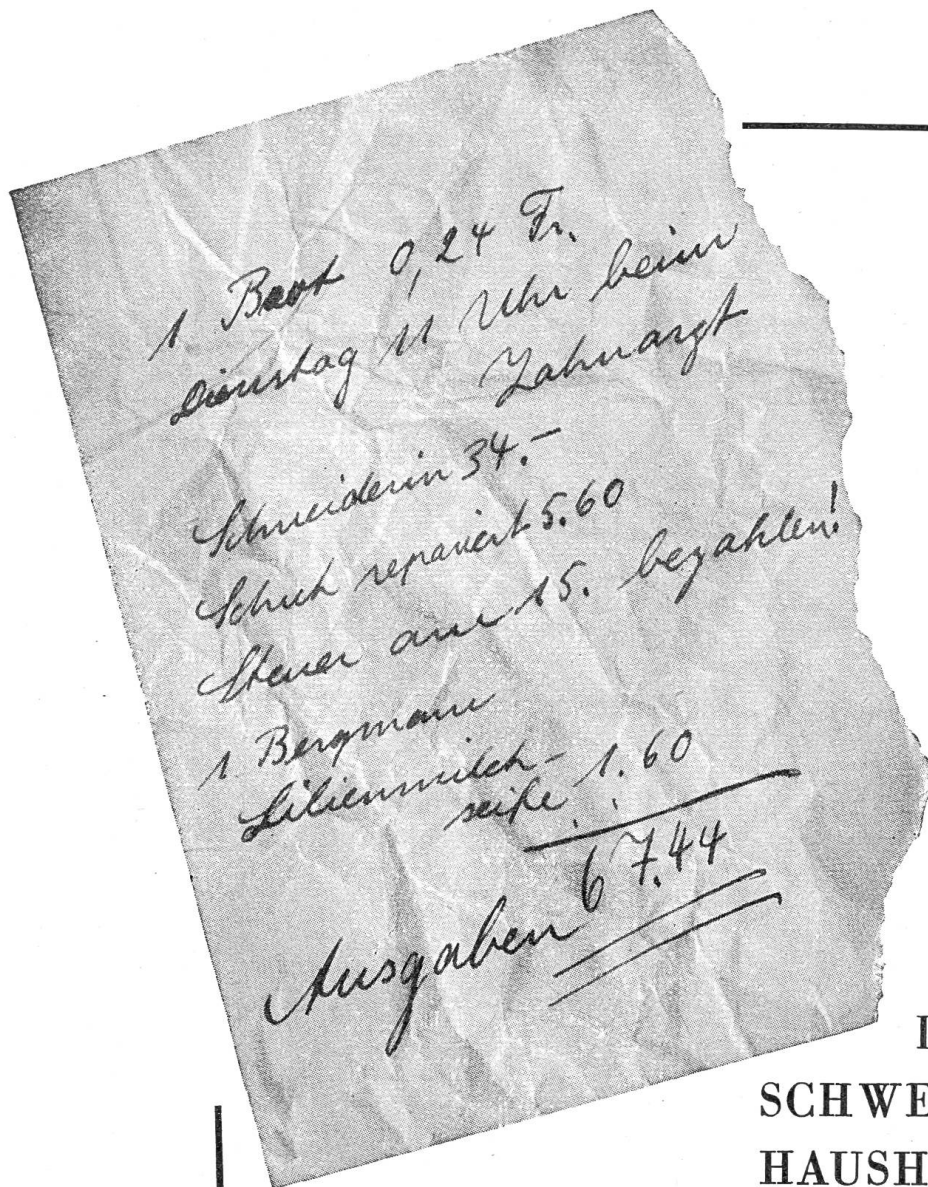 1 Brot 0,24 Fr.
Dienstag 11 Uhr beim
Zahnarzt
Schneiderin 34.–
Schuh repariert 5.60
Steuer am 15. bezahlen!
1 Bergmann
Lilienmilch-
seife 1.60
67.44
Ausgaben
I
SCHWE
HAUSH